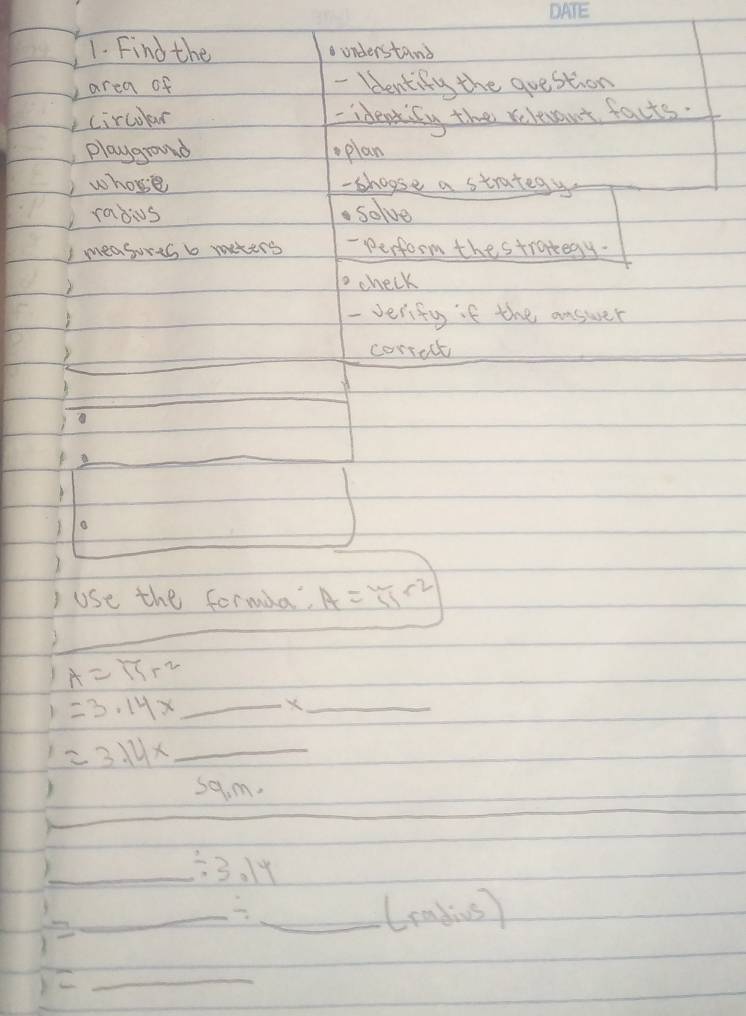 DATE
1. Find the
area of
circular
playground
whose
radius
measures 6 meters
• understand
- Identify the question
- identify the relevant facts.
• plan
- choose a strategy
• solve
- Perform the strategy.
• check
- verify if the answer
correct
•
•
•
use the formula: A = πr²
A = πr²
= 3.14 x ____ x ____
= 3.14 x ____
sq.m.
____ ÷ 3.14
= ____ ÷ ____ (radius)
= ____